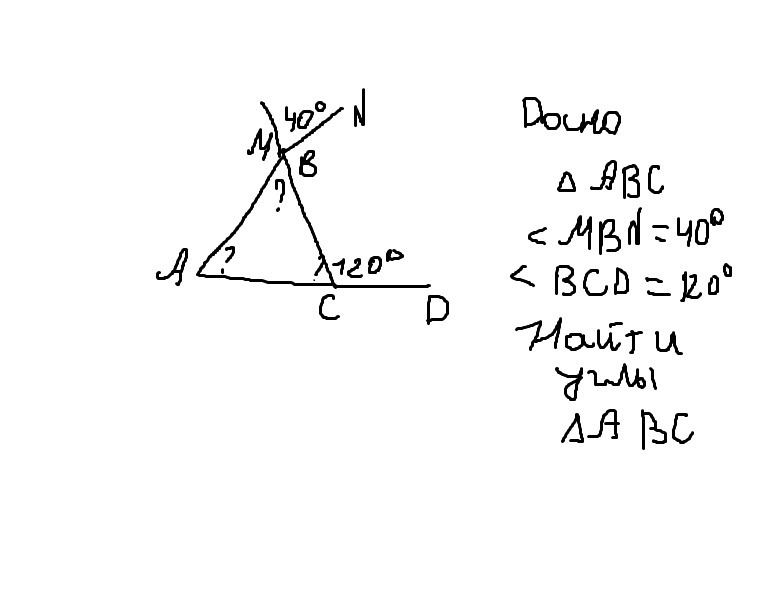 40° N
M B
?
A ? ? 120°
C D
Дано
△ ABC
< MBN = 40°
< BCD = 120°
Найти
углы
△ABC